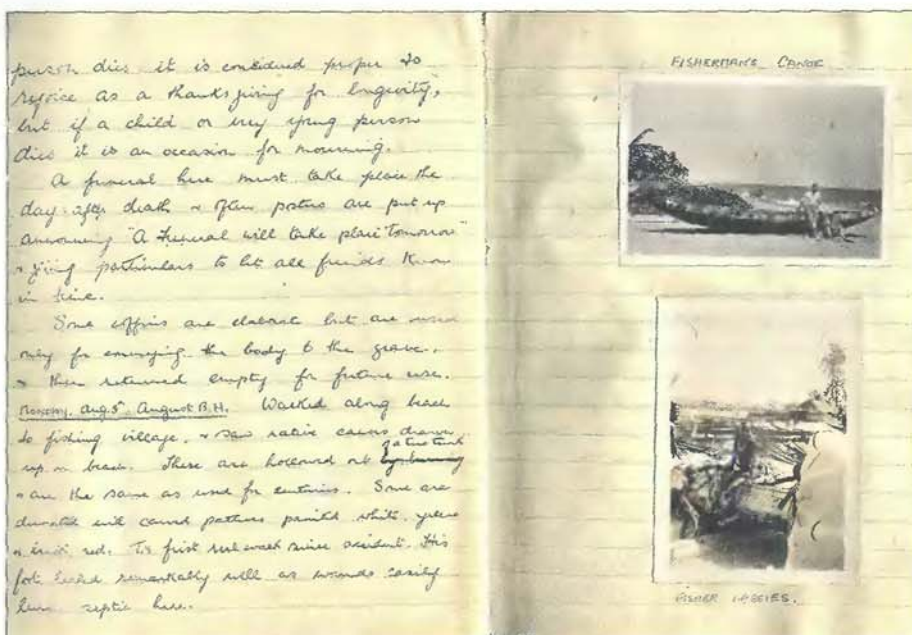 person dies it is considered proper to
rejoice as a thanksgiving for longevity,
but if a child or very young person
dies it is an occasion for mourning.
A funeral here must take place the
day after death & often posters are put up
announcing "A Funeral will take place tomorrow"
& giving particulars to let all friends know
in time.
Some coffins are elaborate but are used
only for conveying the body to the grave,
& then returned empty for future use.
Monday. Aug. 5th August B.H. Walked along beach
to fishing village, & saw native canoes drawn
up on beach. These are hollowed out of a tree trunk by burning
& are the same as used for centuries. Some are
decorated with carved patterns painted white, yellow
& brick red. T's first real walk since accident. His
foot healed remarkably well as wounds easily
turn septic here.
FISHERMAN'S CANOE
FISHER LASSIES.